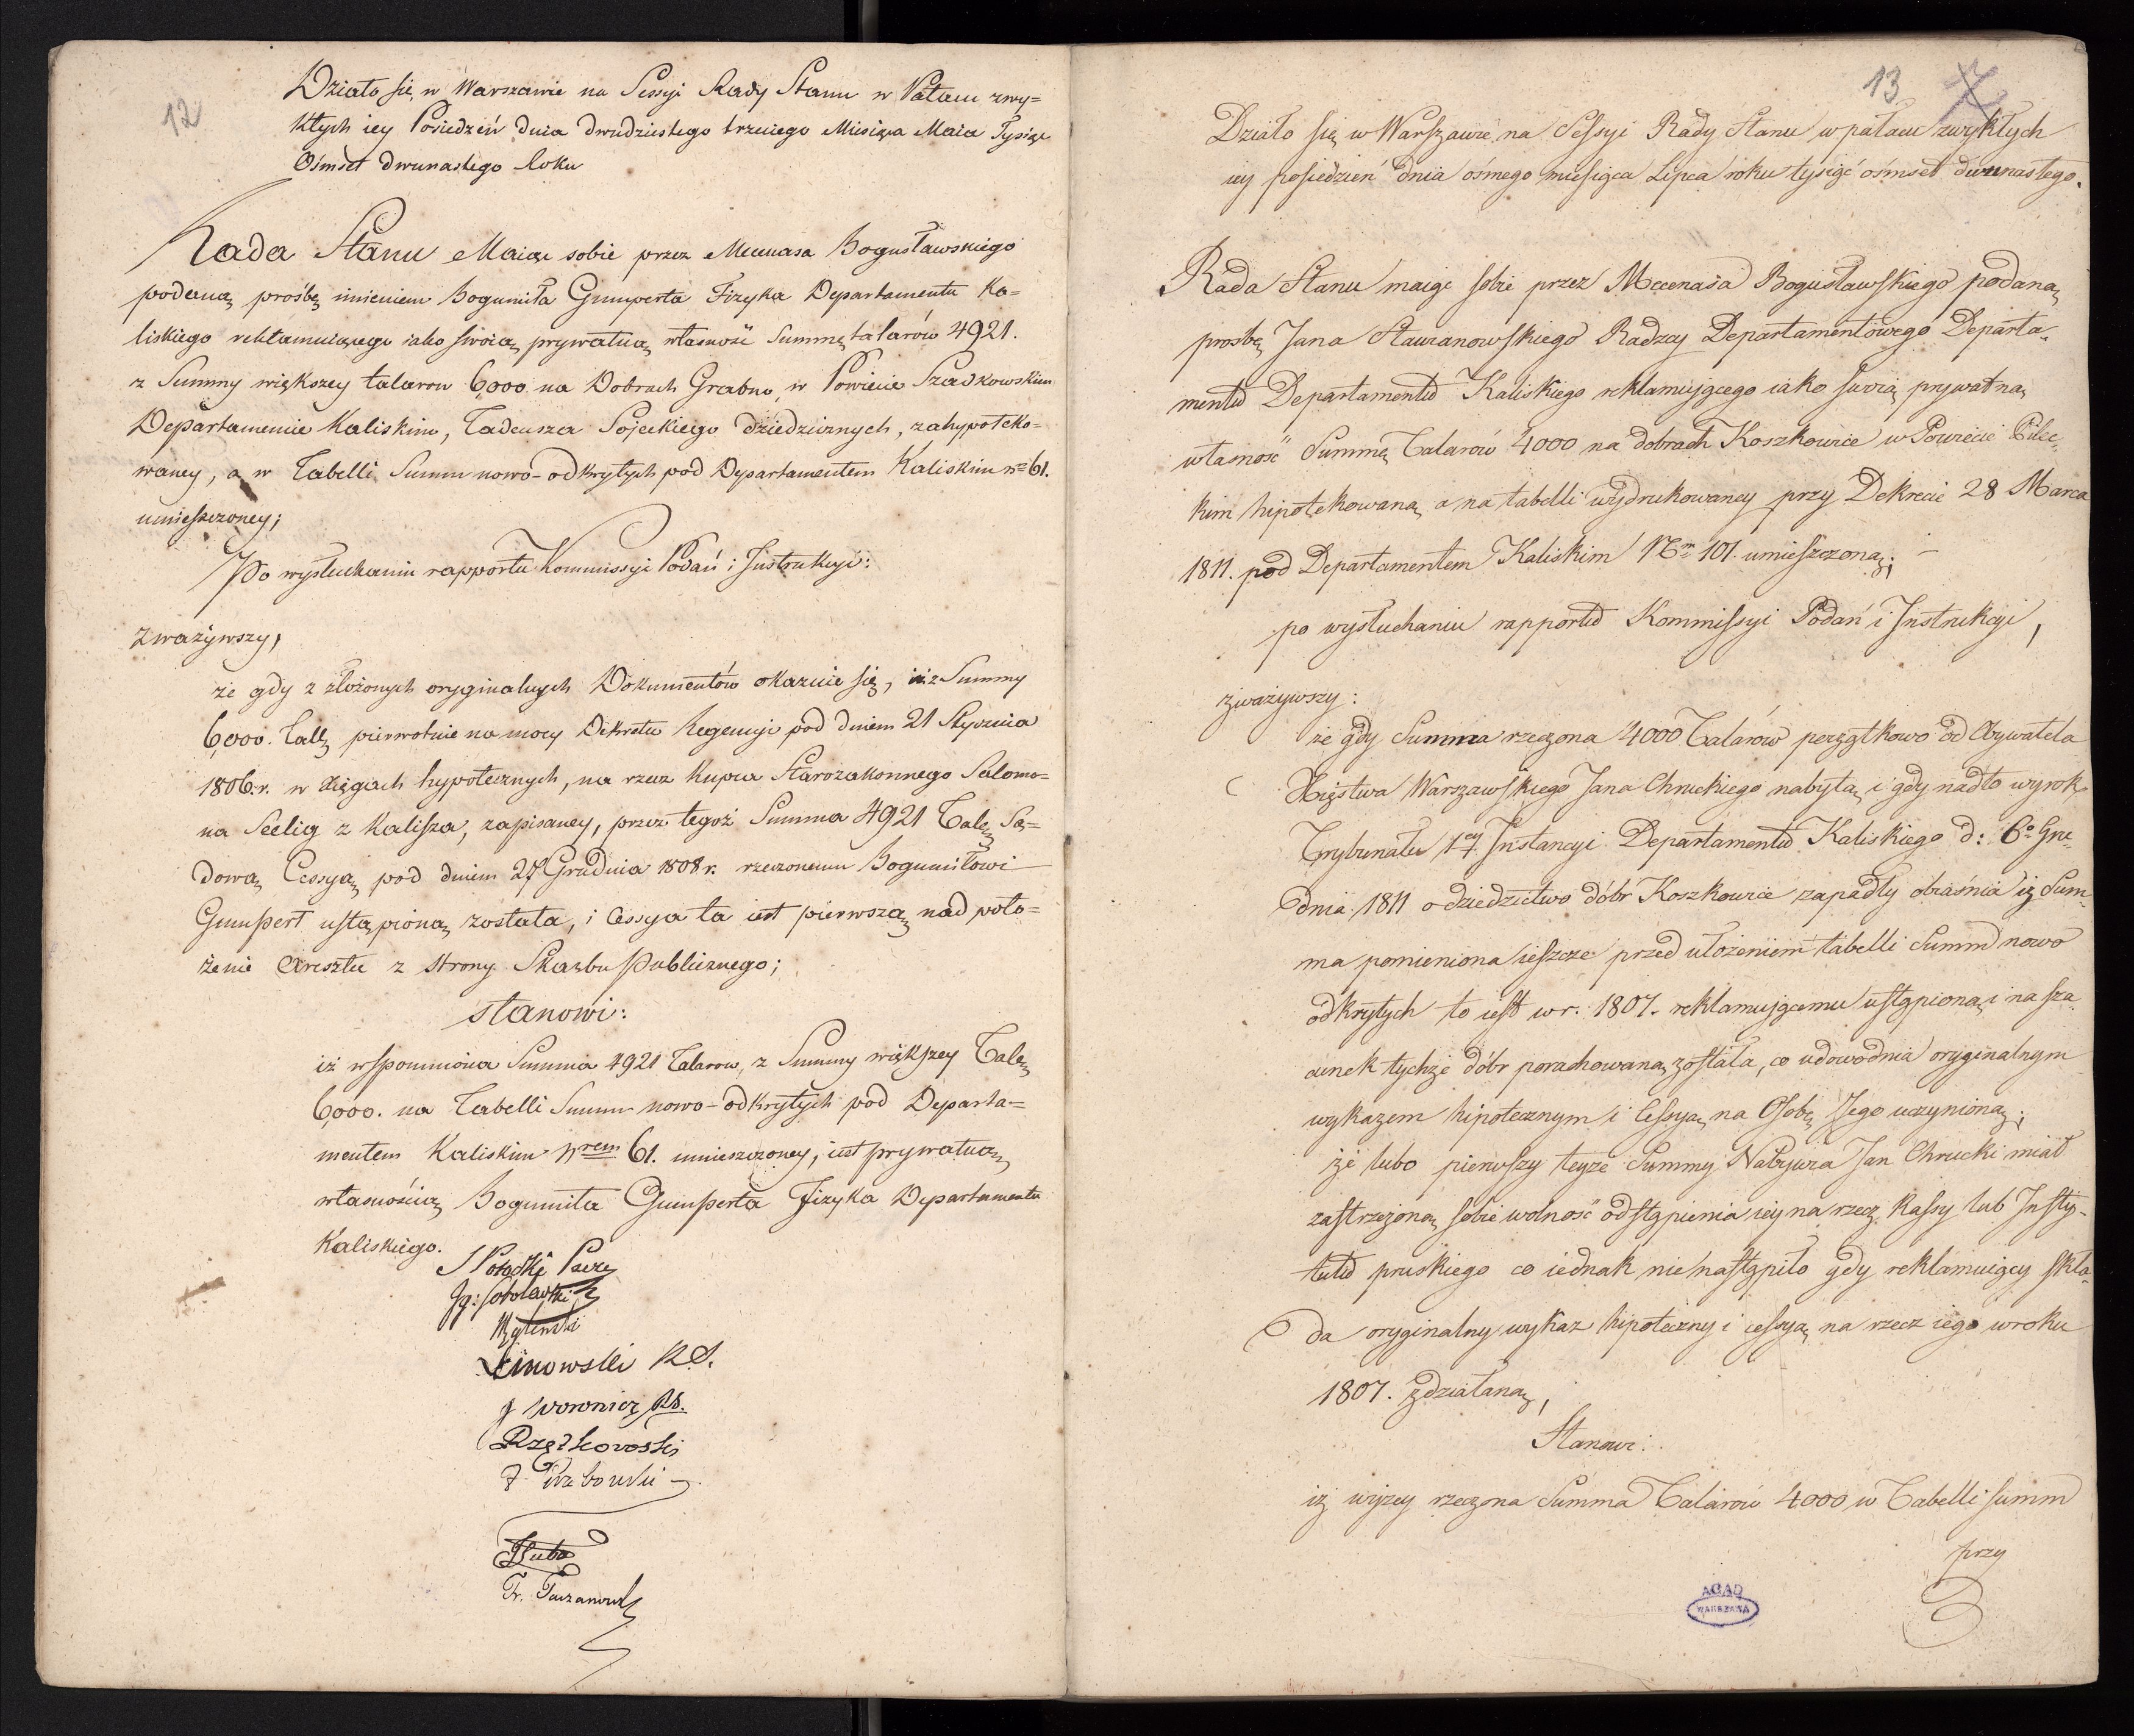 12
Działo się w Warszawie na Sessyi Rady Stanu w Pałacu zwy=
kłych iey Posiedzeń dnia dwudziestego trzeciego Miesiąca Maia Tysiąc
Ośmset dwunastego Roku
Rada Stanu Maiąc sobie przez Mecenasa Bogusławskiego
podaną prośbę imieniem Bogumiła Gumperta Fizyka Departamentu Ka=
liskiego reklamuiącego iako swoią prywatną własność Summę talarów 4921.
z Summy większey talarow 6,000 na Dobrach Grabno, w Powiecie Szadkowskim
Departamencie Kaliskim, Tadeusza Sojeckiego dziedzicznych, zahypoteko=
waney, a w Tabelli Summ nowo-odkrytych pod Departamentem Kaliskim No 61.
umieszczoney;
Po wysłuchaniu rapportu Kommissyi Podań i Instrukcyi:
Zważywszy,
że gdy z złożonych oryginalnych Dokumentów okazuie się, iż z Summy
6,000. Tall pierwotnie na mocy Dekretu Regencyi pod dniem 21 Stycznia
1806. r. w Xięgach hypotecznych, na rzecz Kupca Starozakonnego Salomo=
na Seelig z Kalisza, zapisaney, przez tegoż Summa 4921 Tale Są=
dową Cessyą pod dniem 27 Grudnia 1808 r. rzeczonemu Bogumiłowi
Gumpert ustąpioną została, i Cessya ta iest pierwszą nad poło=
żenie Aresztu z strony Skarbu Publicznego;
stanowi:
iż wspomniona Summa 4921 Talarow, z Summy większey Tale
6,000. na Tabelli Summ nowo-odkrytych pod Departa=
mentem Kaliskim Nrem 61. umieszczoney, iest prywatną
własnością Bogumiła Gumperta Fizyka Departamentu
Kaliskiego.
S Potocki Prezy
Ig: Sobolewski
Linowski R.S.
J Woronicz RS.
Fr. Taczanowski
13
Działo się w Warszawie na Sessyi Rady Stanu w pałacu zwykłych
iey posiedzień dnia ośmego miesiąca Lipca roku tysiąć ośmset dwunastego.
Rada Stanu maiąc sobie przez Mecenasa Bogusławskiego podaną
prosbę Jana Stawianowskiego Radzcy Departamentowego Departa=
mentu Departamentu Kaliskiego reklamuiącego iako swoią prywatną
własność Summę Talarów 4000 na dobrach Koszkowice w Powiecie Pilec=
kim hipotekowaną a na tabelli wydrukowaney przy Dekrecie 28 Marca
1811. pod Departamentem Kaliskim Nrm 101. umieszczoną;
po wysłuchaniu rapportu Kommissyi Podań i Instrukcyi,
zważywszy:
że gdy Summa rzeczona 4000 Talarów początkowo od Obywatela
Xięstwa Warszawskiego Jana Chruckiego nabytą, i gdy nadto wyrok
Trybunału 1ey Instancyi Departamentu Kaliskiego d: 6o Gru=
dnia 1811 o dziedzictwo dóbr Koszkowice zapadły obiaśnia iż Sum=
ma pomieniona ieszcze przed ułożeniem tabelli Summ nowo
odkrytych to iest w r: 1807. reklamuiącemu ustąpioną i na sza=
cunek tychże dóbr porachowaną została, co udowodnia oryginalnym
wykazem hipotecznym i Cessyą na Osobę Jego uczynioną;
że lubo pierwszy teyże Summy Nabywca Jan Chrucki miał
zastrzeżoną sobie wolność odstąpienia iey na rzecz Kassy lub Insty=
tutu pruskiego co iednak nie nastąpiło gdy reklamuiący skła=
da oryginalny wykaz hipoteczny i cessyą na rzecz iego w roku
1807. zdziałaną,
Stanowi:
iż wyżey rzeczona Summa Talarów 4000 w Tabelli summ
przy
AGAD
WARSZAWA